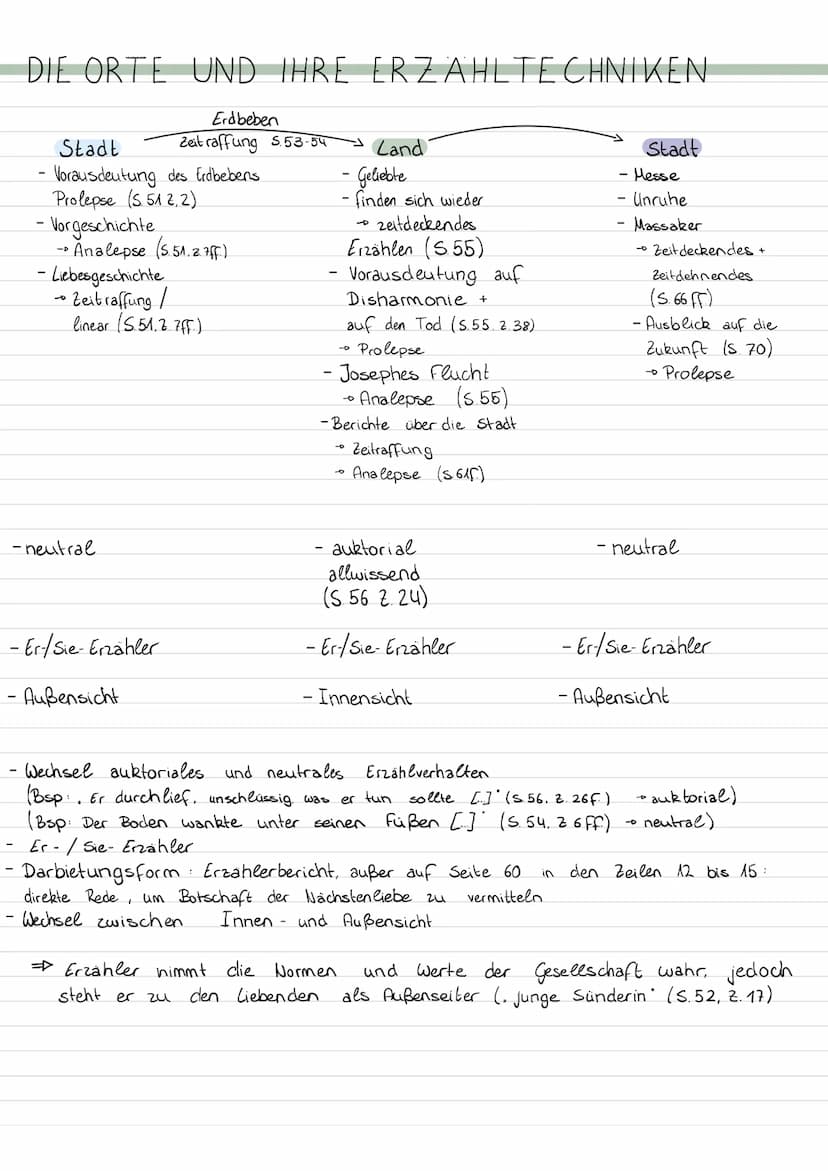 DIE ORTE UND IHRE ERZÄHLTECHNIKEN
Erdbeben
Zeitraffung S.53-54
Stadt
- Vorausdeutung des Erdbebens
Prolepse (S.51 Z,2)
- Vorgeschichte
→ Analepse (S.51.Z.7ff.)
- Liebesgeschichte
→ Zeitraffung /
linear (S.51,Z.7ff.)
Land
- Geliebte
- finden sich wieder
→ zeitdeckendes
Erzählen (S.55)
- Vorausdeutung auf
Disharmonie +
auf den Tod (S.55. Z.38)
→ Prolepse
- Josephes Flucht
→ Analepse (S.55)
- Berichte über die Stadt
→ Zeitraffung
→ Analepse (S.61f.)
Stadt
- Messe
- Unruhe
- Massaker
→ Zeitdeckendes +
zeitdehnendes
(S.66ff)
- Ausblick auf die
Zukunft (S.70)
→ Prolepse
- neutral
- auktorial
allwissend
(S.56 Z.24)
- neutral
- Er-/Sie-Erzähler
- Er-/Sie-Erzähler
- Er-/Sie-Erzähler
- Außensicht
- Innensicht
- Außensicht
- Wechsel auktoriales und neutrales Erzählverhalten
(Bsp.: „Er durchlief, unschlüssig was er tun sollte [..]" (S.56, Z.26f.) → auktorial)
(Bsp: Der Boden wankte unter seinen Füßen [..]" (S.54, Z 6ff) → neutral)
- Er-/Sie-Erzähler
- Darbietungsform: Erzählerbericht, außer auf Seite 60 in den Zeilen 12 bis 15:
direkte Rede, um Botschaft der Nächstenliebe zu vermitteln
- Wechsel zwischen Innen- und Außensicht
⇒ Erzähler nimmt die Normen und Werte der Gesellschaft wahr, jedoch
steht er zu den Liebenden als Außenseiter („junge Sünderin" (S.52, Z.17)